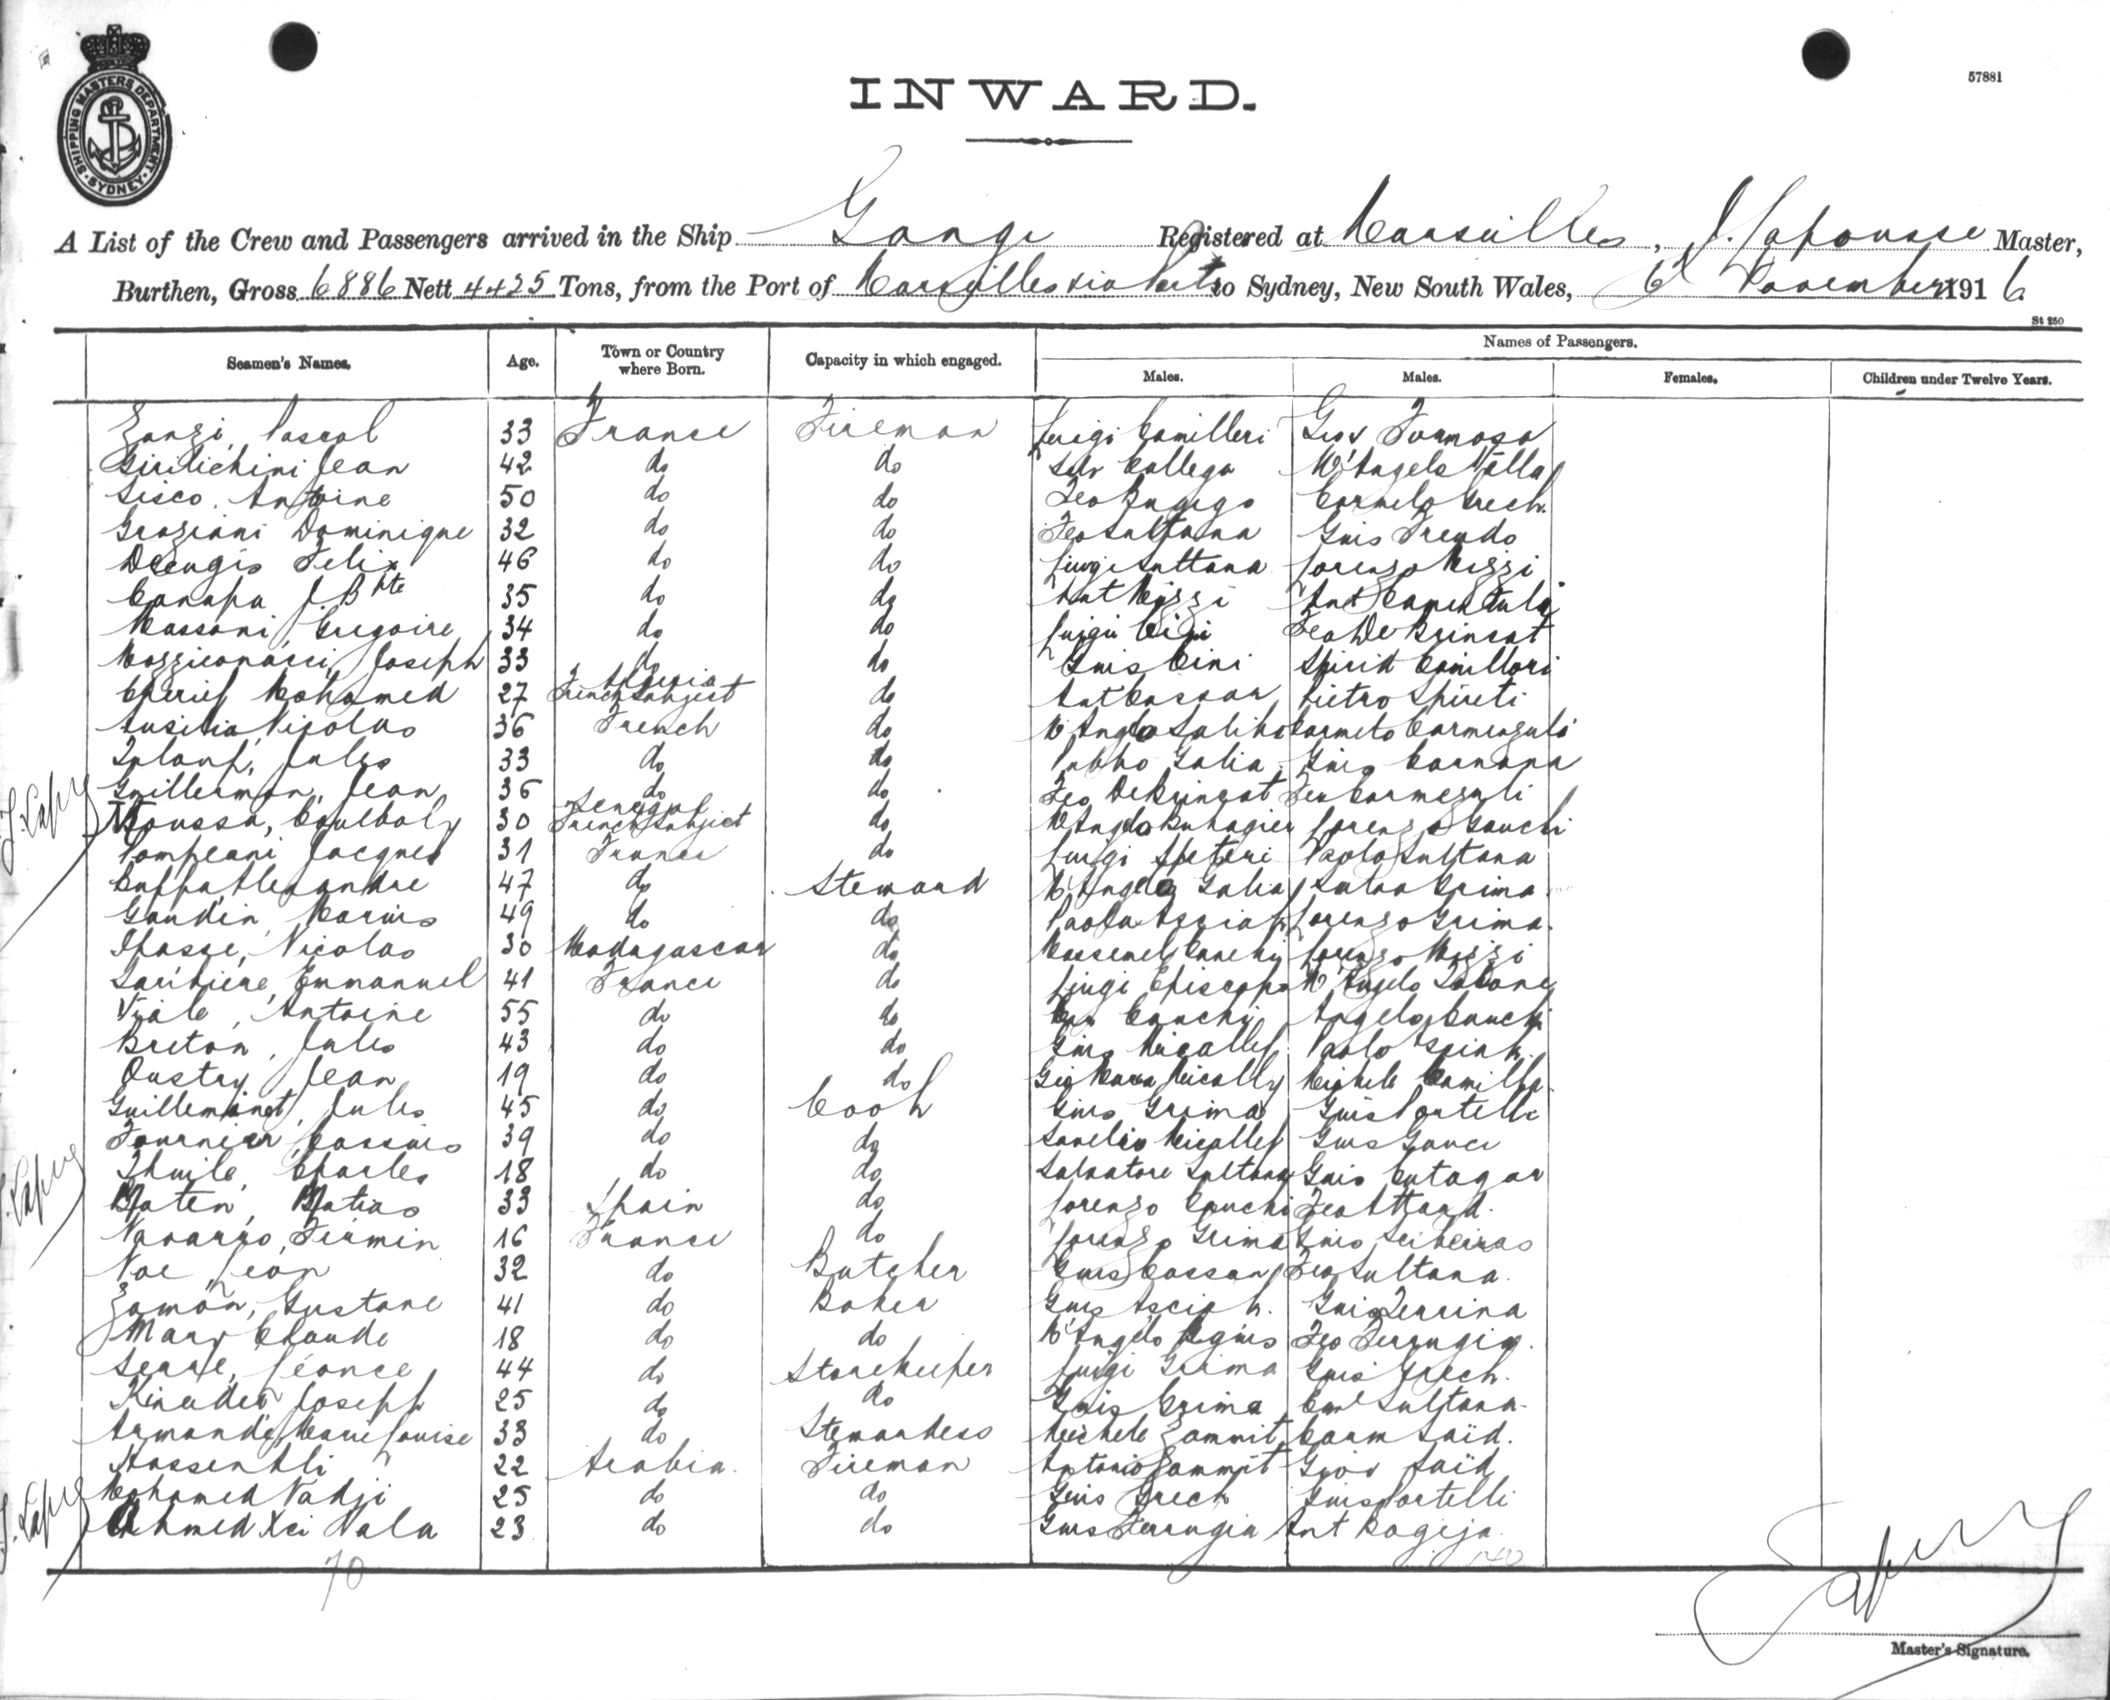 SHIPPING MASTERS DEPARTMENT SYDNEY
57881
INWARD.
A List of the Crew and Passengers arrived in the Ship Gange Registered at Marseilles, J. Lapousse Master,
Burthen, Gross 6886 Nett 4425 Tons, from the Port of Marseilles via Ports to Sydney, New South Wales, 6th November 1916
St 250
Seamen's Names. Age. Town or Country where Born. Capacity in which engaged. Names of Passengers.
Males. Males. Females. Children under Twelve Years.
Zanzi, Pascal 33 France Fireman Luigi Camilleri Giov Formosa
Jean 42 do do Salv Callega M'Angelo Vella
Sisco, Antoine 50 do do Feo Carmelo Grech
Graziani Dominique 32 do do Feo Sultana Gius Freudo
Felix 46 do do Luigi Sultana Lorenzo Mizzi
Canapa J. Bte 35 do do Ant Mizzi Ant
Massoni, Gregoire 34 do do Luigi Cini Feo De Brincat
Mozziconacci, Joseph 33 do do Gius Cini Spirid Camilleri
Cherif Mohamed 27 Algeria French Subject do Ant Cassar Pietro Spireti
Nicolas 36 French do M'Anglo Saliba Carmelo
Jules 33 do do Galia Gius Caruana
Guillermon, Jean 36 do do Feo DeBrincat Feo
Moussa, Coulbaly 30 Senegal French Subject do M'Anglo Buhagier Lorenzo Gauchi
Pompeani Jacques 31 France do Luigi Speteri Paolo Sultana
Cuppa, Alexandre 47 do Steward M'Angelo Galia Grima
Gaudin, Marius 49 do do Paolo Lorenzo Grima
Nicolas 30 Madagascar do Lorenzo Mizzi
Emmanuel 41 France do Luigi Episcopo M'Angelo
Viale, Antoine 55 do do Cauchi Angelo Cauchi
Breton, Jules 43 do do Gius Micallef Paolo
Oustry Jean 19 do do Mically Michele
Guilleminet, Jules 45 do Cook Gius Grima Gius Portelli
Fournier, Cassius 39 do do Micallef Gius Gauci
Thuile, Charles 18 do do Salvatore Sultana Gius Cutagar
Maten, Matias 33 Spain do Lorenzo Cauchi Feo Attard.
Navarro, Firmin 16 France do Lorenzo Grima Gius
Noe, Leon 32 do Butcher Gius Cassar Feo Sultana.
Zamon, Gustave 41 do Baker Gius Gius Terrina
Mary Claude 18 do do M'Angelo Agius Feo Ferrugia.
Serre, Léonce 44 do Storekeeper Luigi Grima Gius Grech.
Joseph 25 do do Gius Grima Carml Sultana
Armandi, Marie Louise 33 do Stewardess Michele Zammit Carm Saïd.
Hassen Ali 22 Arabia. Fireman Antonio Zammit Giov Saïd
Mohamed Nadji 25 do do Gius Grech Gius Portelli
Ahmed Xei Nala 23 do do Gius Ferrugia Ant Bagija
70 140
Master's Signature.